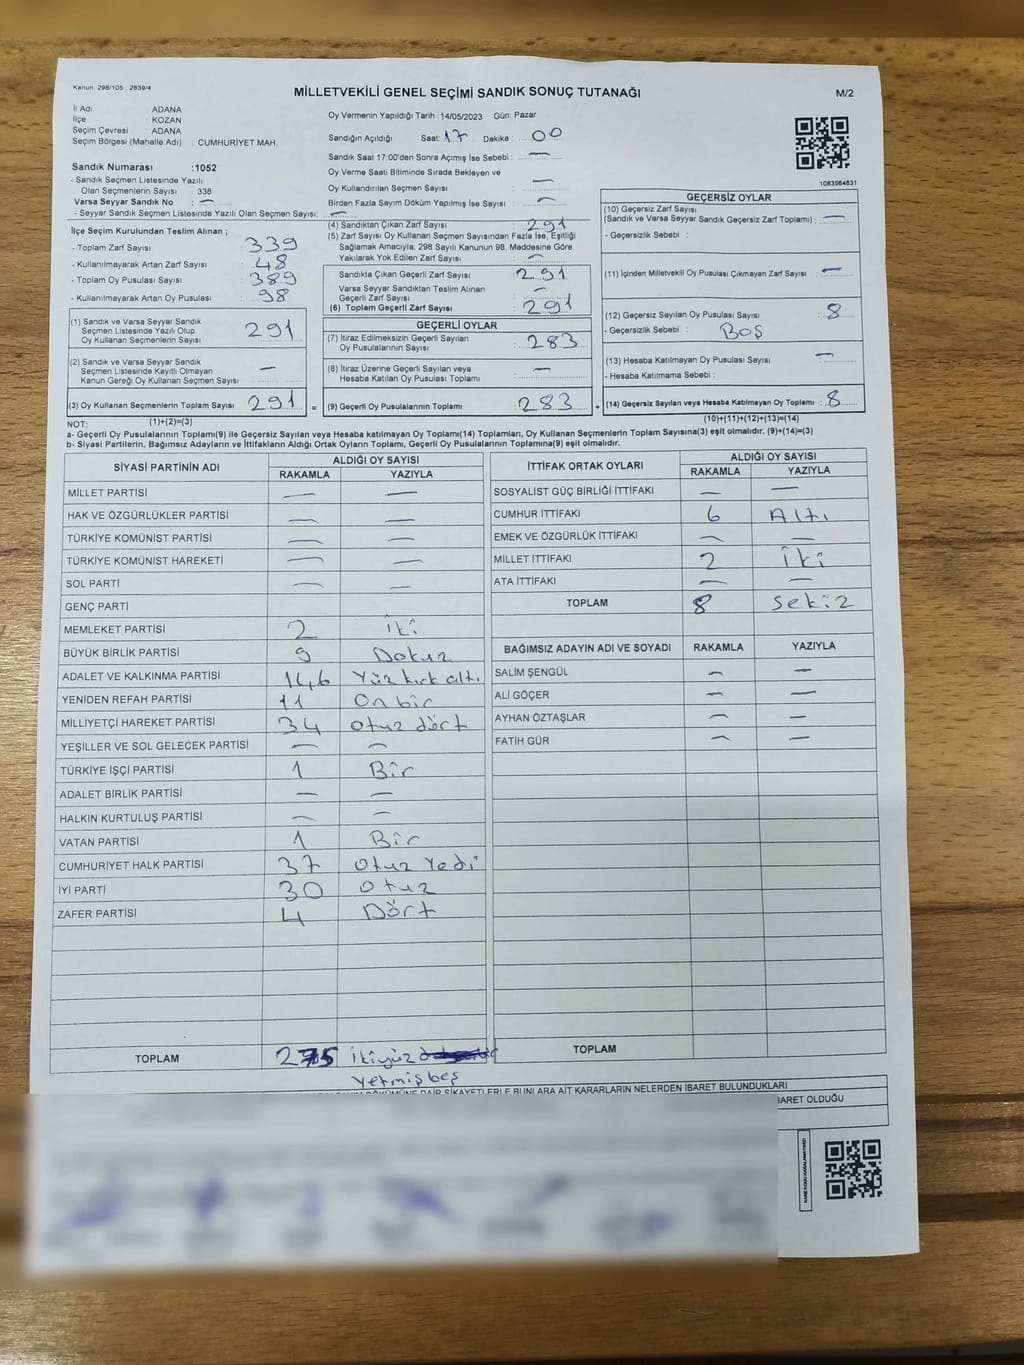 Kanun: 298/105 ; 2839/4
MİLLETVEKİLİ GENEL SEÇİMİ SANDIK SONUÇ TUTANAĞI
M/2
İl Adı : ADANA
İlçe : KOZAN
Seçim Çevresi : ADANA
Seçim Bölgesi (Mahalle Adı) : CUMHURİYET MAH.
Sandık Numarası :1052
- Sandık Seçmen Listesinde Yazılı
Olan Seçmenlerin Sayısı : 338
Varsa Seyyar Sandık No : —
- Seyyar Sandık Seçmen Listesinde Yazılı Olan Seçmen Sayısı: —
İlçe Seçim Kurulundan Teslim Alınan ;
- Toplam Zarf Sayısı : 339
- Kullanılmayarak Artan Zarf Sayısı : 48
- Toplam Oy Pusulası Sayısı : 389
- Kullanılmayarak Artan Oy Pusulası : 98
(1) Sandık ve Varsa Seyyar Sandık
Seçmen Listesinde Yazılı Olup
Oy Kullanan Seçmenlerin Sayısı : 291
(2) Sandık ve Varsa Seyyar Sandık
Seçmen Listesinde Kayıtlı Olmayan
Kanun Gereği Oy Kullanan Seçmen Sayısı : —
(3) Oy Kullanan Seçmenlerin Toplam Sayısı : 291 =
Oy Vermenin Yapıldığı Tarih :14/05/2023 Gün: Pazar
Sandığın Açıldığı Saat: 17 Dakika : 00
Sandık Saat 17:00'den Sonra Açımış İse Sebebi : —
Oy Verme Saati Bitiminde Sırada Bekleyen ve
Oy Kullandırılan Seçmen Sayısı : —
Birden Fazla Sayım Döküm Yapılmış İse Sayısı : —
(4) Sandıktan Çıkan Zarf Sayısı : 291
(5) Zarf Sayısı Oy Kullanan Seçmen Sayısından Fazla İse, Eşitliği
Sağlamak Amacıyla; 298 Sayılı Kanunun 98. Maddesine Göre
Yakılarak Yok Edilen Zarf Sayısı : —
Sandıkta Çıkan Geçerli Zarf Sayısı : 291
Varsa Seyyar Sandıktan Teslim Alınan
Geçerli Zarf Sayısı : —
(6) Toplam Geçerli Zarf Sayısı : 291
GEÇERLİ OYLAR
(7) İtiraz Edilmeksizin Geçerli Sayılan
Oy Pusulalarının Sayısı : 283
(8) İtiraz Üzerine Geçerli Sayılan veya
Hesaba Katılan Oy Pusulası Toplamı : —
(9) Geçerli Oy Pusulalarının Toplamı : 283 +
1083564631
GEÇERSİZ OYLAR
(10) Geçersiz Zarf Sayısı
(Sandık ve Varsa Seyyar Sandık Geçersiz Zarf Toplamı) : —
- Geçersizlik Sebebi :
(11) İçinden Milletvekili Oy Pusulası Çıkmayan Zarf Sayısı : —
(12) Geçersiz Sayılan Oy Pusulası Sayısı : 8
- Geçersizlik Sebebi : BOŞ
(13) Hesaba Katılmayan Oy Pusulası Sayısı : —
- Hesaba Katılmama Sebebi :
(14) Geçersiz Sayılan veya Hesaba Katılmayan Oy Toplamı : 8
NOT: (1)+(2)=(3) (10)+(11)+(12)+(13)=(14)
a- Geçerli Oy Pusulalarının Toplamı(9) ile Geçersiz Sayılan veya Hesaba katılmayan Oy Toplamı(14) Toplamları, Oy Kullanan Seçmenlerin Toplam Sayısına(3) eşit olmalıdır. (9)+(14)=(3)
b- Siyasi Partilerin, Bağımsız Adayların ve İttifakların Aldığı Ortak Oyların Toplamı, Geçerli Oy Pusulalarının Toplamına(9) eşit olmalıdır.
SİYASİ PARTİNİN ADI ALDIĞI OY SAYISI
RAKAMLA YAZIYLA
MİLLET PARTİSİ — —
HAK VE ÖZGÜRLÜKLER PARTİSİ — —
TÜRKİYE KOMÜNİST PARTİSİ — —
TÜRKİYE KOMÜNİST HAREKETİ — —
SOL PARTİ — —
GENÇ PARTİ
MEMLEKET PARTİSİ 2 İki
BÜYÜK BİRLİK PARTİSİ 9 Dokuz
ADALET VE KALKINMA PARTİSİ 146 Yüz kırk altı
YENİDEN REFAH PARTİSİ 11 On bir
MİLLİYETÇİ HAREKET PARTİSİ 34 Otuz dört
YEŞİLLER VE SOL GELECEK PARTİSİ — —
TÜRKİYE İŞÇİ PARTİSİ 1 Bir
ADALET BİRLİK PARTİSİ — —
HALKIN KURTULUŞ PARTİSİ — —
VATAN PARTİSİ 1 Bir
CUMHURİYET HALK PARTİSİ 37 Otuz Yedi
İYİ PARTİ 30 Otuz
ZAFER PARTİSİ 4 Dört
TOPLAM 275 İkiyüz
Yetmiş beş
İTTİFAK ORTAK OYLARI ALDIĞI OY SAYISI
RAKAMLA YAZIYLA
SOSYALİST GÜÇ BİRLİĞİ İTTİFAKI — —
CUMHUR İTTİFAKI 6 Altı
EMEK VE ÖZGÜRLÜK İTTİFAKI — —
MİLLET İTTİFAKI 2 İki
ATA İTTİFAKI — —
TOPLAM 8 Sekiz
BAĞIMSIZ ADAYIN ADI VE SOYADI RAKAMLA YAZIYLA
SALİM ŞENGÜL — —
ALİ GÖÇER — —
AYHAN ÖZTAŞLAR — —
FATİH GÜR — —
TOPLAM
DÖKÜMÜNE DAİR ŞİKAYETLERLE BUNLARA AİT KARARLARIN NELERDEN İBARET BULUNDUKLARI
BARET OLDUĞU
KARE KODU KARALAMAYINIZ!